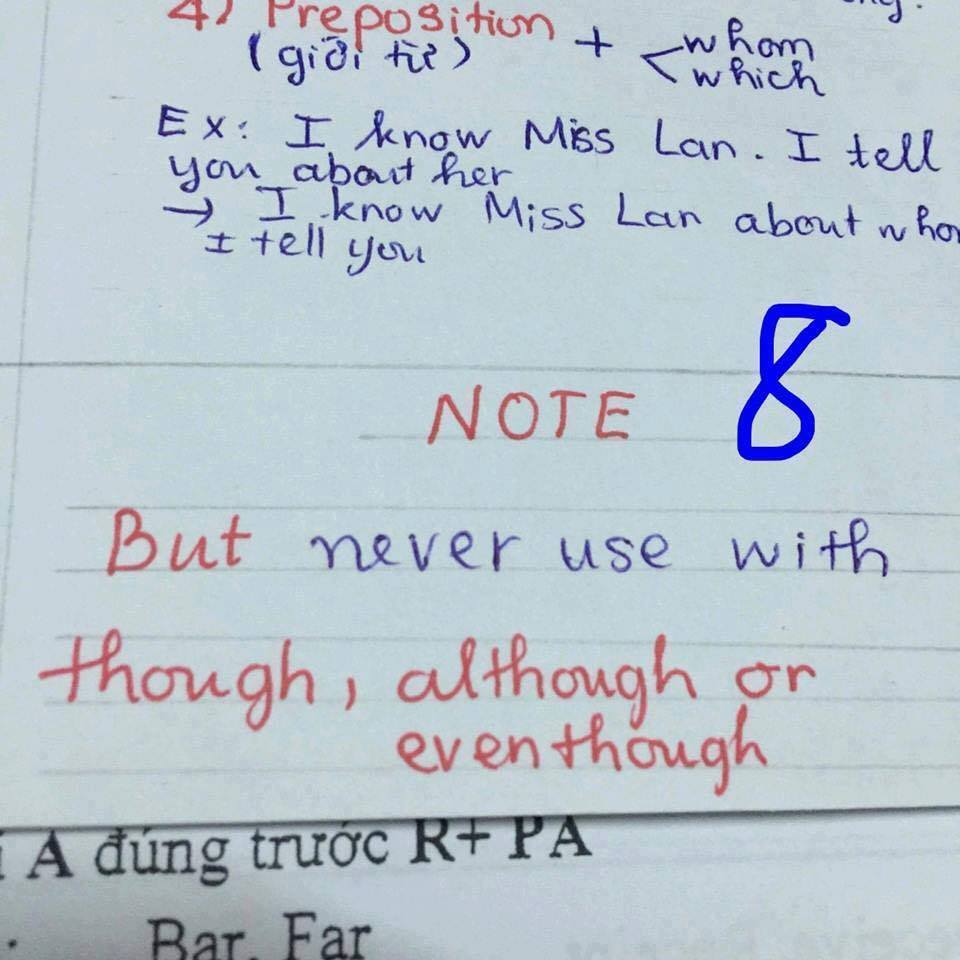 4) Preposition + whom
(giới từ) which
Ex: I know Miss Lan. I tell
you about her
→ I know Miss Lan about
I tell you
8
NOTE
But never use with
though, although or
eventhough
A đúng trước R+ PA
Bar, Far